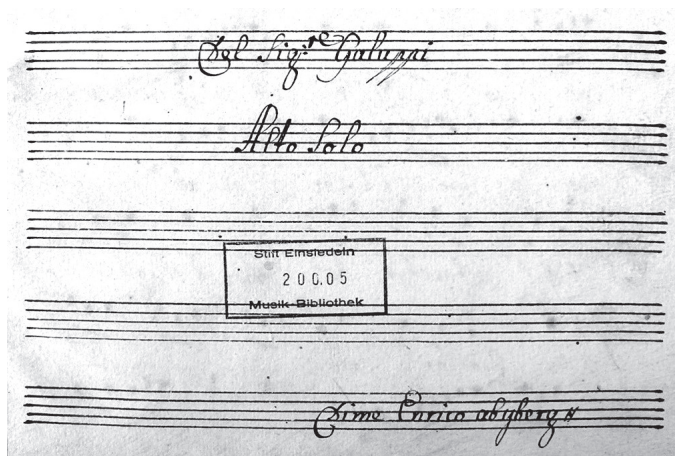 Del Sig:re Galuppi
Alto Solo
Stift Einsiedeln
200.05
Musik-Bibliothek
Dime Enrico abyberg